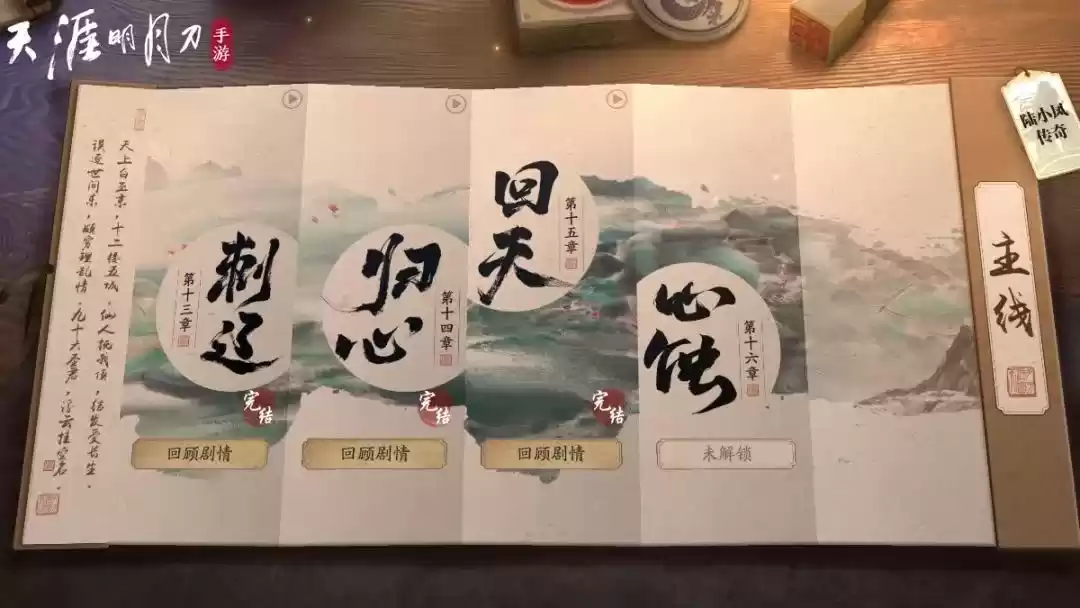 天涯明月刀
手游
陆小凤
传奇
主线
天上白玉京，十二楼五城。仙人抚我顶，结发受长生。
误逐世间乐，颇穷理乱情。九十六圣君，浮云挂空名。
第十三章
刺辽
完结
回顾剧情
第十四章
归心
完结
回顾剧情
第十五章
回天
完结
回顾剧情
第十六章
心蚀
未解锁